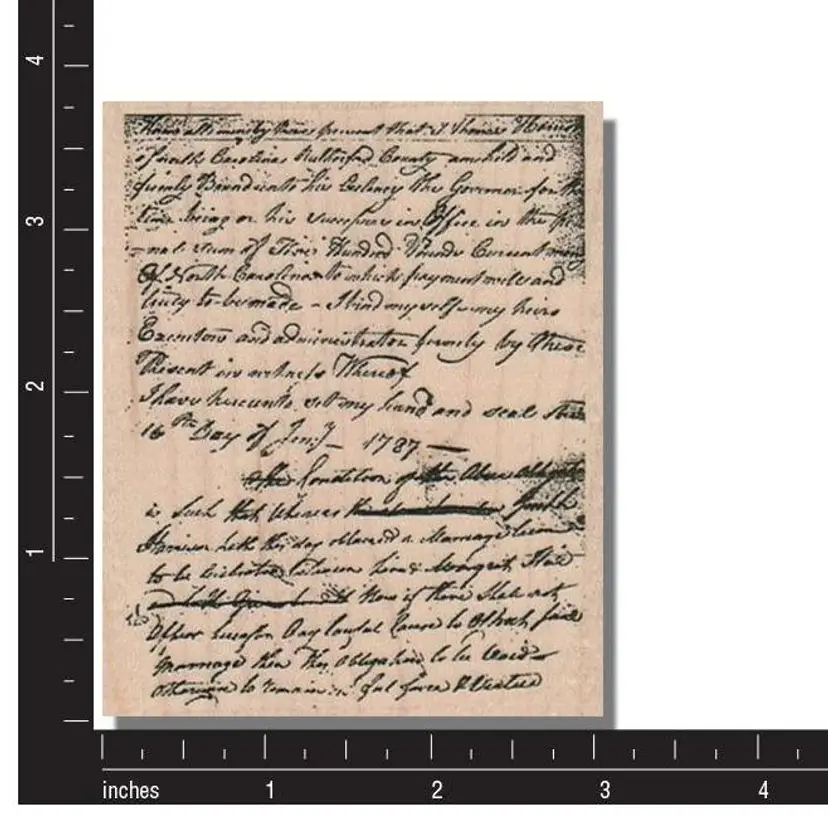 4
3
2
1
Know all men by these present that I Thomas
of north Carolina Rutherford County am held and
firmly Bound unto his the Governor for the
time being or his in Office in the
sum of Three Hundred Pounds Current
Of North Carolina to which payment well and
truly to be made - I bind my self my heirs
Executors and administrators firmly by these
Present Whereof
I have hereunto set my hand and seal this
16th Day of - 1787 -
the Condition of the Above
is Such that Whereas
Harrison hath this day obtained a Marriage
to be between him &
Now if there Shall not
appear Any lawful Cause to said
marriage then this Obligation to be Void
otherwise to remain in full force & Virtue
inches 1 2 3 4